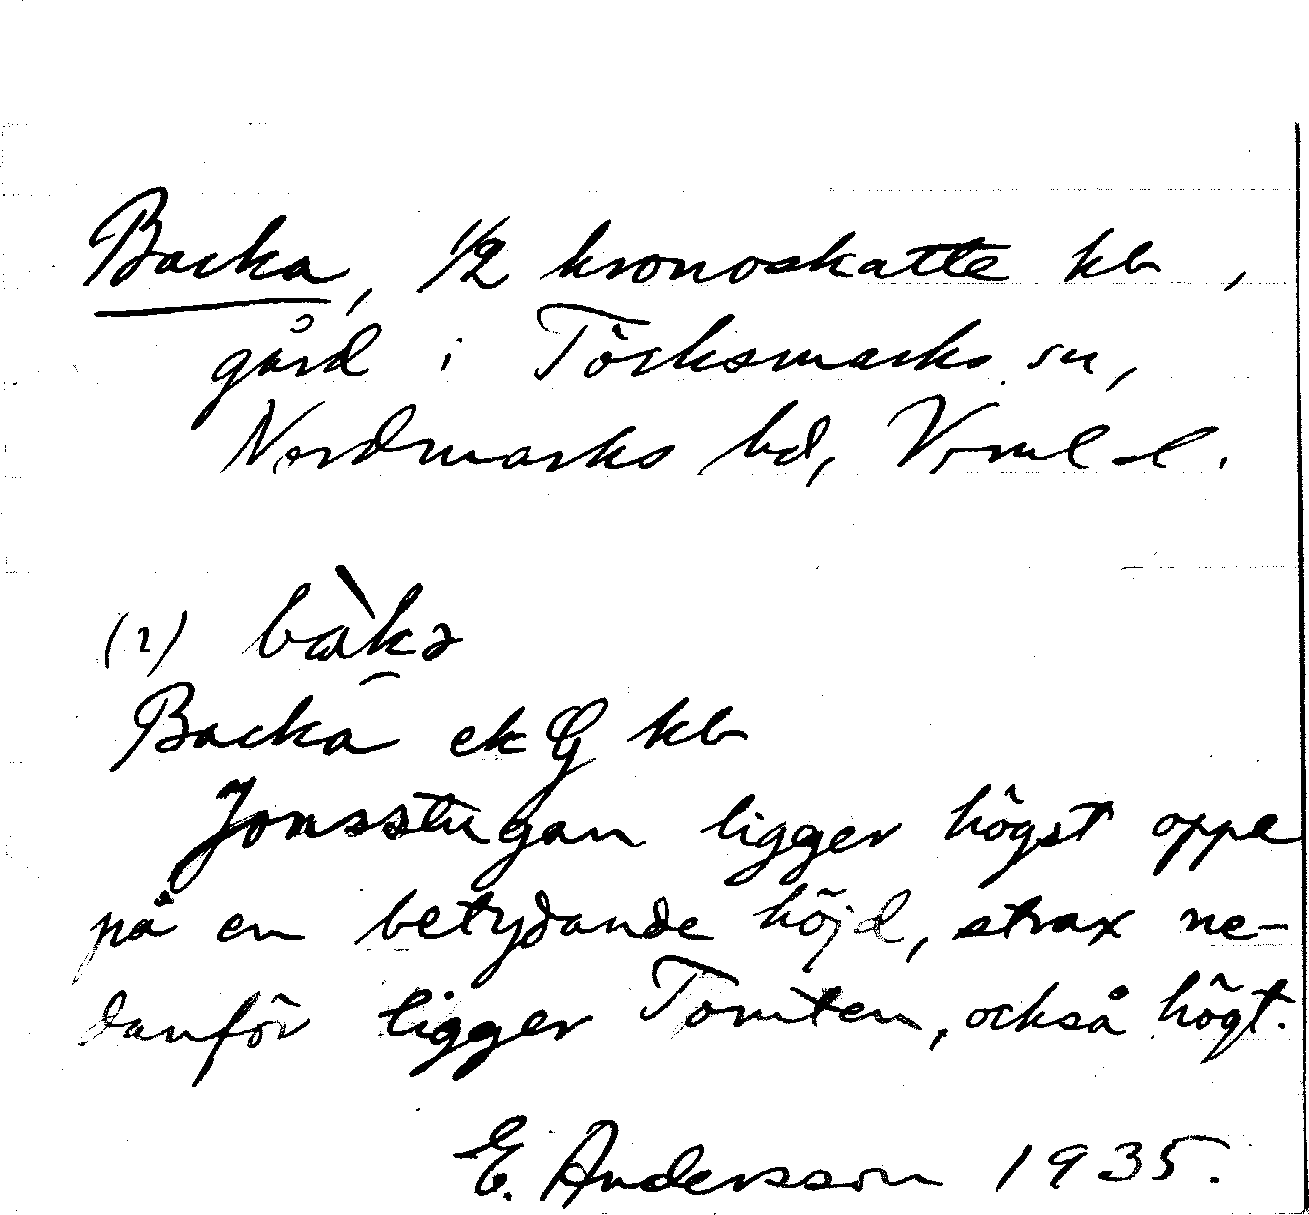 Backa, 1/2 kronoskatte kb,
gård i Töcksmarks sn,
Nordmarks hd, Vrml. l.
(2) bàkə
Backa ek G kb
Jonsstugan ligger högst oppe
på en betydande höjd, strax ne-
danför ligger Tomten, också högt.
E. Andersson 1935.